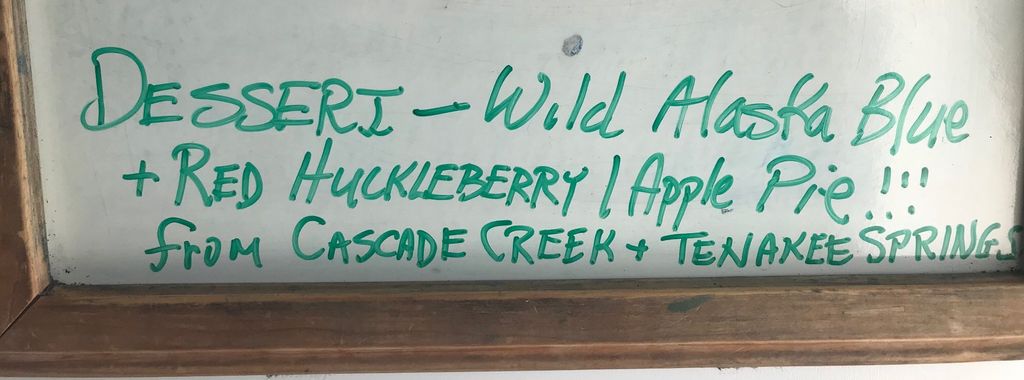 DESSERT - Wild Alaska Blue
+ RED HUCKLEBERRY / Apple Pie!!!
from CASCADE CREEK + TENAKEE SPRINGS